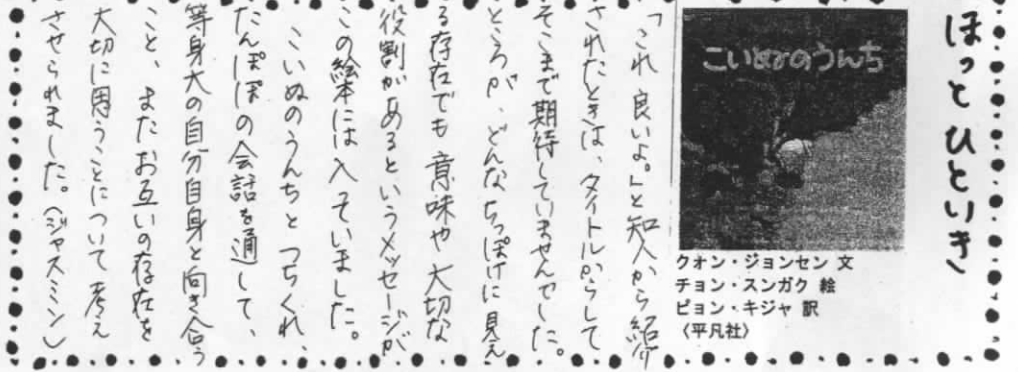 ほっとひといき
こいぬのうんち
クオン・ジョンセン 文
チョン・スンガク 絵
ピョン・キジャ 訳
〈平凡社〉
「これ良いよ。」と知人から紹介
されたときは、タイトルからして
そこまで期待していませんでした。
ところが、どんなちっぽけに見え
る存在でも意味や大切な
役割があるというメッセージが
この絵本には入っていました。
こいぬのうんちとつちくれ、
たんぽぽの会話を通して、
等身大の自分自身と向き合う
こと、またお互いの存在を
大切に思うことについて考え
させられました。(ジャスミン)